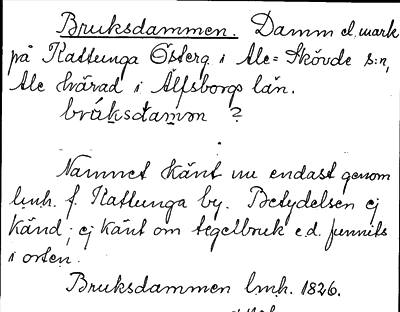 Bruksdammen. Damm el. mark
på Kattunga Österg. i Ale=Skövde s:n,
Ale härad i Älfsborgs län.
bruksdammen ?
Namnet känt nu endast genom
lmh. f. Kattunga by. Betydelsen ej
känd; ej känt om tegelbruk e.d. funnits
i orten.
Bruksdammen lmh. 1826.